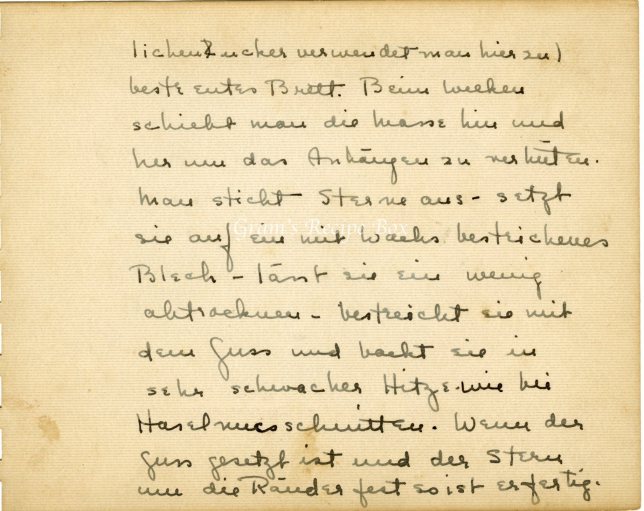 lichen Zucker verwendet man hierzu)
bestreutes Brett. Beim welken
schiebt man die Masse hin und
her um das Anhängen zu verhüten.
Man sticht Sterne aus - setzt
Gram's Recipe Box
sie auf ein mit Wachs bestrichenes
Blech - lässt sie ein wenig
abtrocknen - bestreicht sie mit
dem Guss und backt sie in
sehr schwacher Hitze wie bei
Haselnussschnitten. Wenn der
Guss gesetzt ist und der Stern
um die Ränder fest so ist er fertig.